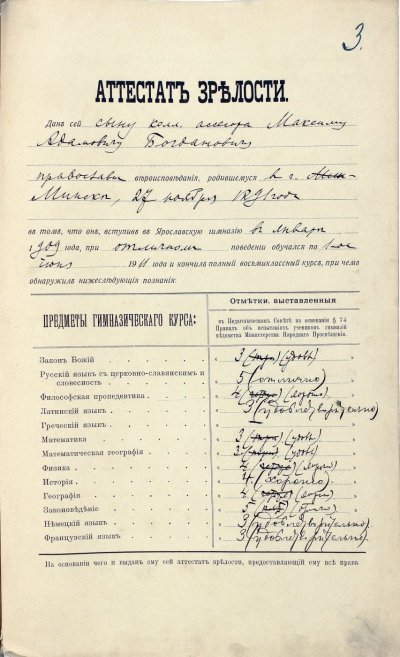 3.
АТТЕСТАТЪ ЗРѢЛОСТИ.
Данъ сей сыну колл. асесора Максиму
Адамовичу Богдановичу
православн вѣроисповѣданія, родившемуся въ г.
Минскѣ, 27 ноября 1891 года
въ томъ, что онъ, вступивъ въ Ярославскую гимназію въ январѣ
1909 года, при отличномъ поведеніи обучался по 1-ое
іюня 1911 года и кончилъ полный восьмиклассный курсъ, при чемъ
обнаружилъ нижеслѣдующія познанія:
ПРЕДМЕТЫ ГИМНАЗИЧЕСКАГО КУРСА:
Отмѣтки, выставленныя
въ Педагогическомъ Совѣтѣ на основаніи § 74
Правилъ объ испытаніяхъ учениковъ гимназій
вѣдомства Министерства Народнаго Просвѣщенія.
Законъ Божій 3 (три) (удовл.)
Русскій языкъ съ церковно-славянскимъ и
словесность 5 (отлично)
Философская пропедевтика 4 (хорошо)
Латинскій языкъ 3 (удовлетворительно)
Греческій языкъ —
Математика 3 (три) (удовл.)
Математическая географія 3 (три) (удовл.)
Физика 4 (хорошо)
Исторія 4 (хорошо)
Географія 4 (хорошо)
Законовѣдѣніе 5
Нѣмецкій языкъ 3 (удовлетворительно)
Французскій языкъ 3 (удовлетворительно)
На основаніи чего и выданъ ему сей аттестатъ зрѣлости, предоставляющій ему всѣ права